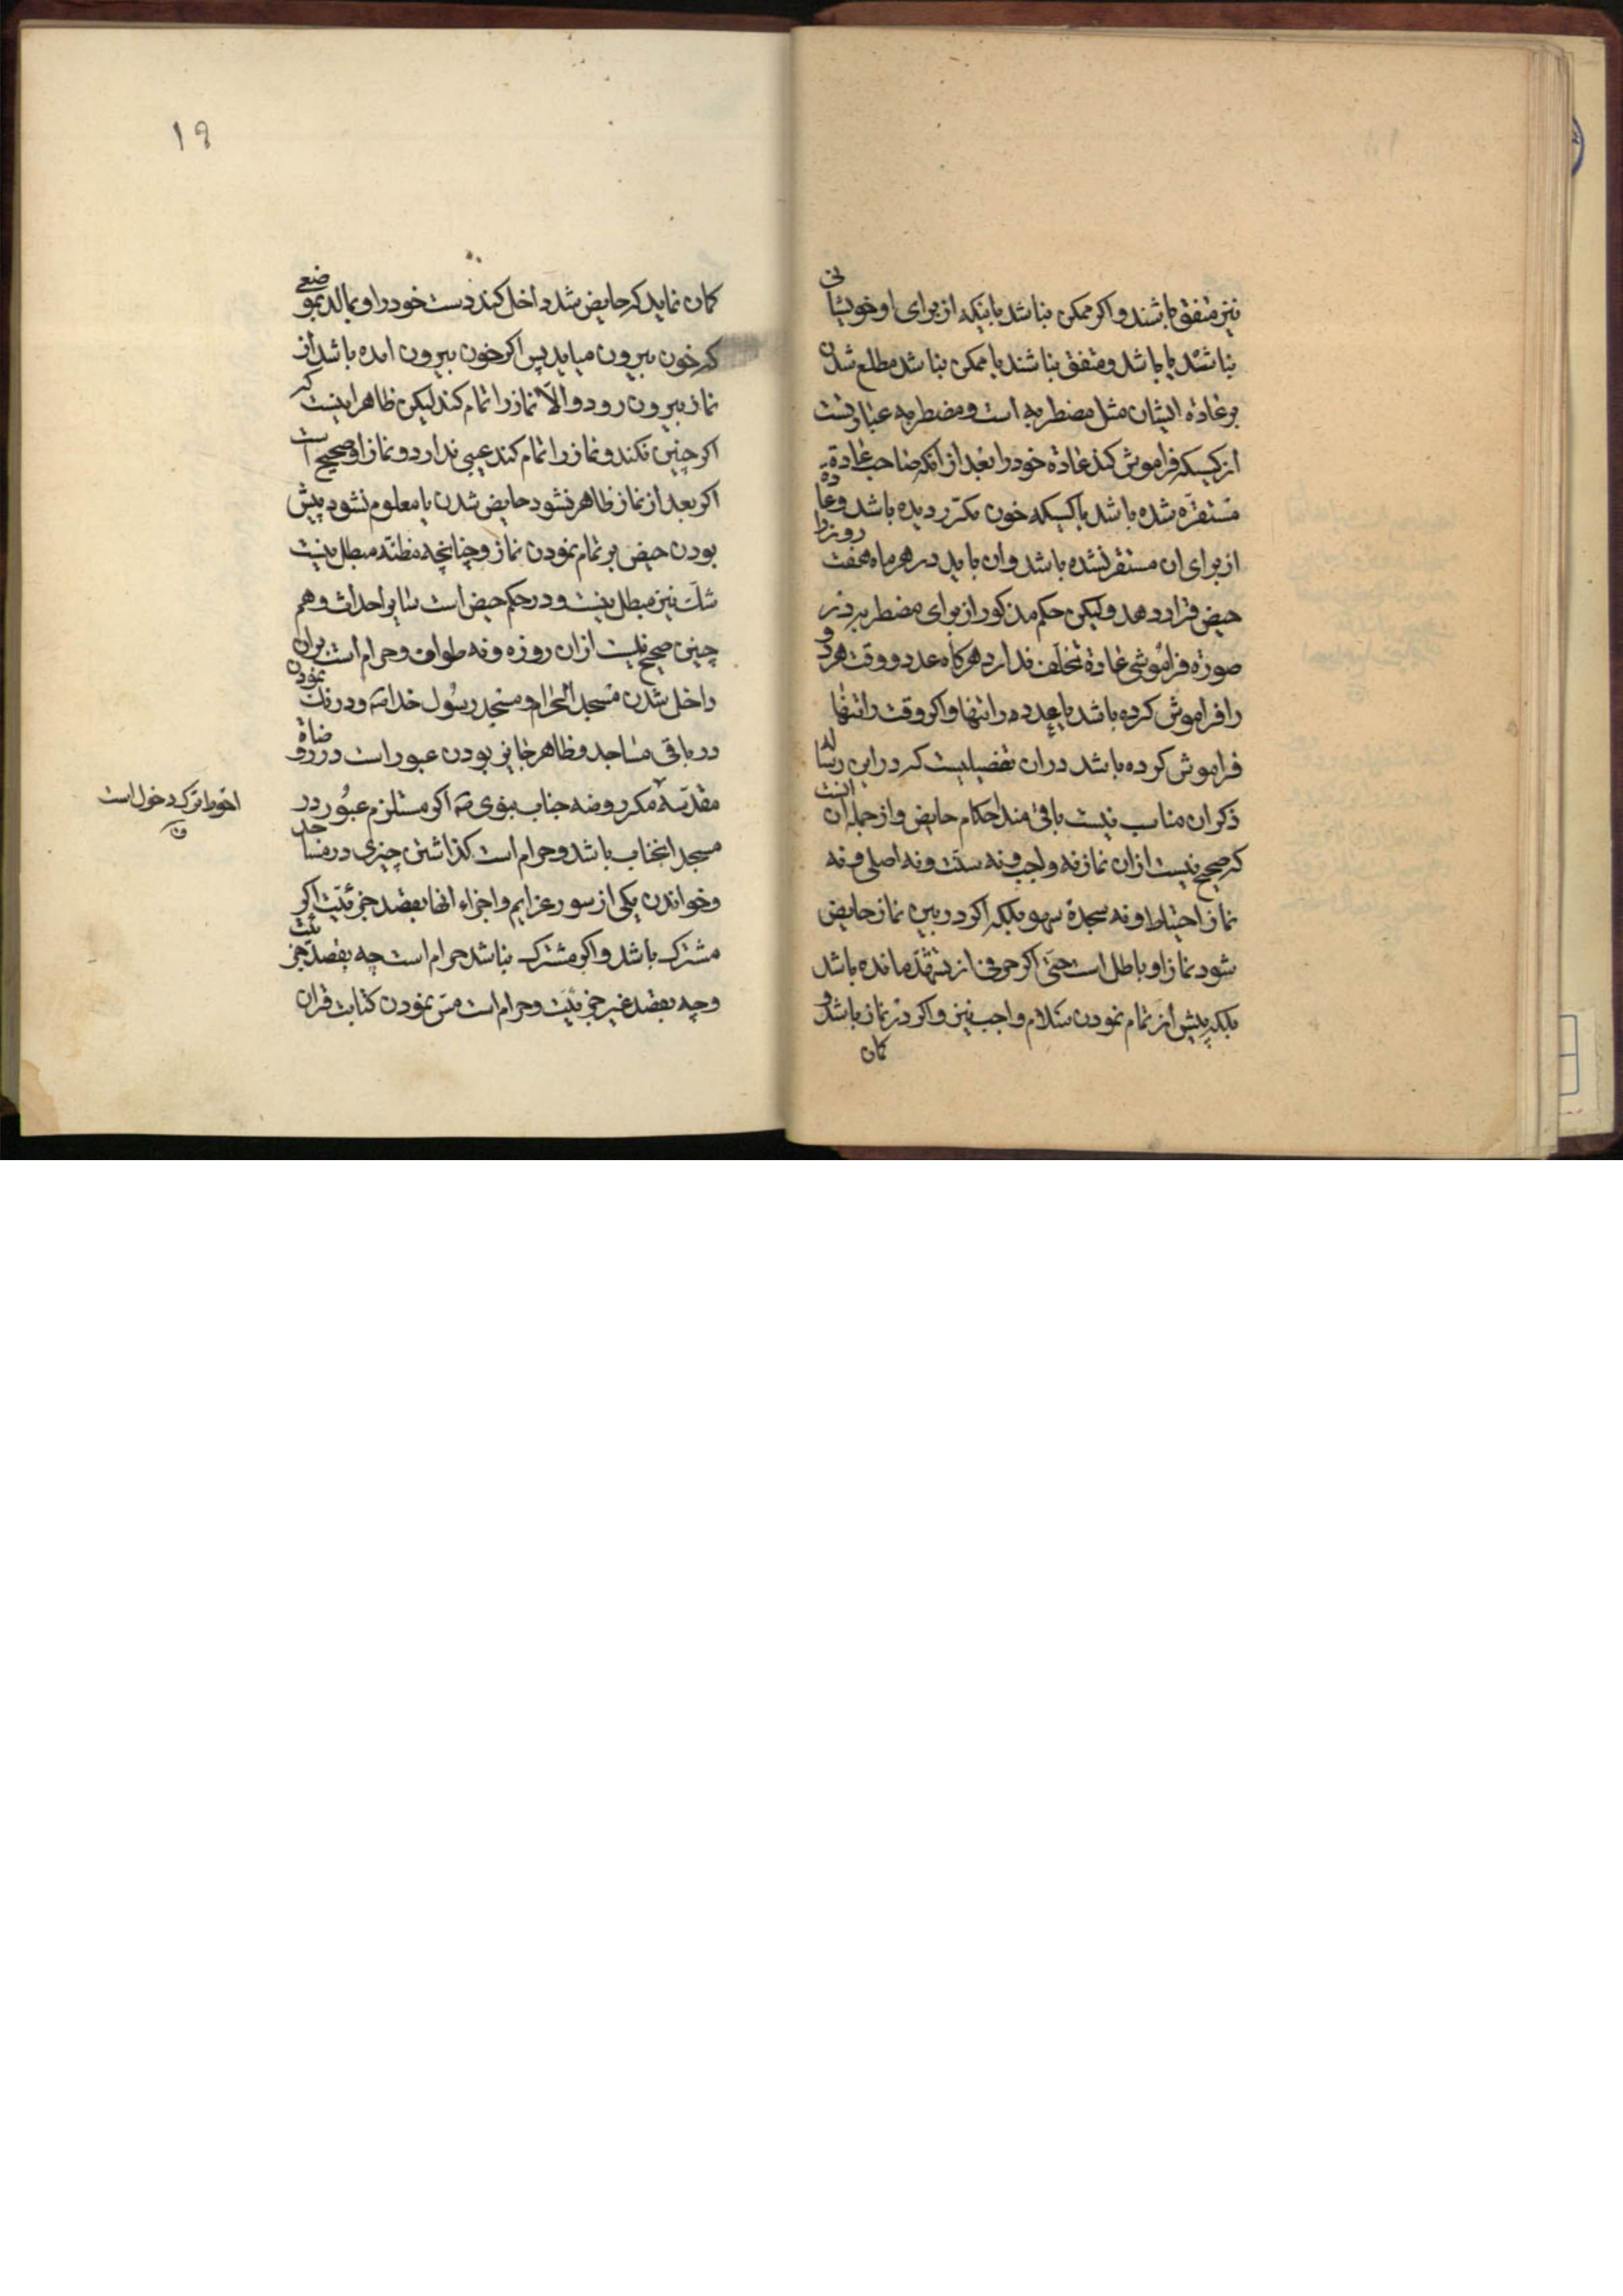 نیز متفق باشند و اکر ممکن نباشد باینکه از برای او خویشانی
نباشد یا باشد و متفق نباشند یا ممکن نباشد مطلع شدن
بر عادة ایشان مثل مضطربه است و مضطربه عبارتست
از کسیکه فراموش کند عادة خود را بعد از انکه صاحب عادة
مستقره شده باشد یا کسیکه خون مکرر دیده باشد و عادة
از برای ان مستقر نشده باشد و ان باید در هر ماه هفت روز را
حیض قرار دهد و لیکن حکم مذکور از برای مضطربه در
صورة فراموشی عادة تخلف ندارد هرکاه عدد و وقت هر دو
را فراموش کرده باشد یا عدد را تنها و اکر وقت را تنها
فراموش کرده باشد در ان تفصیلیست که در این رساله
ذکر ان مناسب نیست باقی ماند احکام حایض و از جمله ان انست
که صحیح نیست از ان نماز نه واجب و نه سنت و نه اصلی و نه
نماز احتیاط و نه سجدة سهو بلکه اکر در بین نماز حایض
شود نماز او باطل است حتی اکر حرفی از تشهد مانده باشد
بلکه پیش از تمام نمودن سلام واجب نیز و اکر در نماز باشد و
کمان
۱۹
کمان نماید که حایض شد داخل کند دست خود را و بمالد بموضعی
که خون بیرون میاید پس اکر خون بیرون امده باشد از
نماز بیرون رود و الا نماز را تمام کند لیکن ظاهر اینست که
اکر چنین نکند و نماز را تمام کند عیبی ندارد و نماز او صحیح است
اکر بعد از نماز ظاهر نشود حایض شدن یا معلوم نشود پیش
بودن حیض بر تمام نمودن نماز و چنانچه مظنه مبطل نیست
شک نیز مبطل نیست و در حکم حیض است سایر احداث و هم
چنین صحیح نیست از ان روزه و نه طواف و حرام است بران
داخل شدن مسجد الحرام و مسجد رسول خدا ص و درنک نمودن
در باقی مساجد و ظاهر جایز بودن عبور است در روضاة
مقدسه مکر روضه جناب نبوی ص اکر مستلزم عبور در
مسجد انجناب باشد و حرام است کذاشتن چیزی در مساجد
و خواندن یکی از سور عزایم و اجزاء انها بقصد جزئیت اکر
مشترک باشد و اکر مشترک نباشد حرام است چه بقصد جزئیت
و چه بقصد غیر جزئیت و حرام است مس نمودن کتابت قران
احوط ترک دخول است